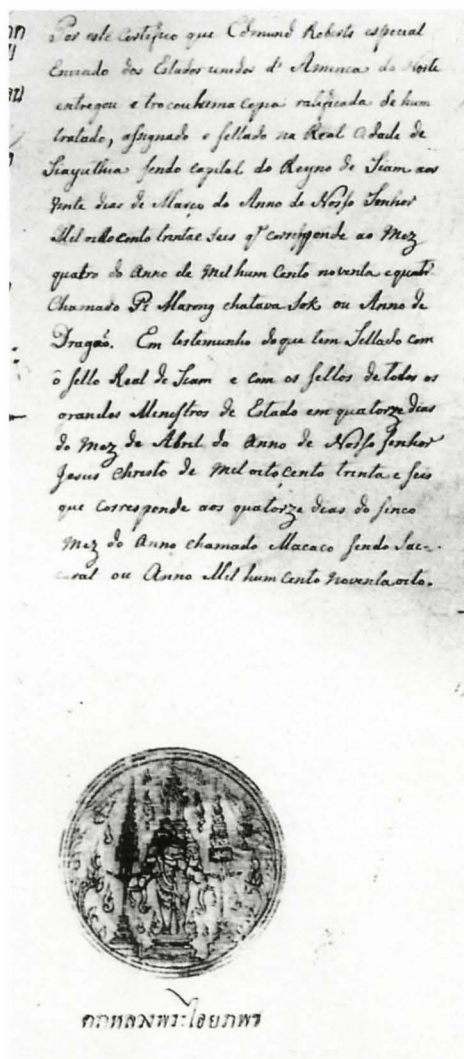 Por este Certifico que Edmund Roberts especial
Enviado dos Estados unidos d' America do Norte
entregou e trocou huma copia ratificada de hum
tratado, assignado e sellado na Real Cidade de
Siayuthia sendo capital do Reyno de Siam aos
Vinte dias de Março do Anno de Nosso Senhor
Mil oito cento trinta e seis qᵉ corresponde ao Mez
quatro do Anno de Mil hum Cento noventa e quatr
Chamado Pi Marong chatava Sok ou Anno de
Dragaõ. Em testemunho do que tem Sellado com
o sello Real de Siam e com os sellos de todos os
grandes Menestros de Estado em quatorze dias
do Mez de Abril do Anno de Nosso Senhor
Jesus Christo de Mil oito cento trinta e seis
que corresponde aos quatorze dias do sinco
Mez do Anno chamado Macaco sendo Sac-
caral ou Anno Mil hum Cento Noventa oito.